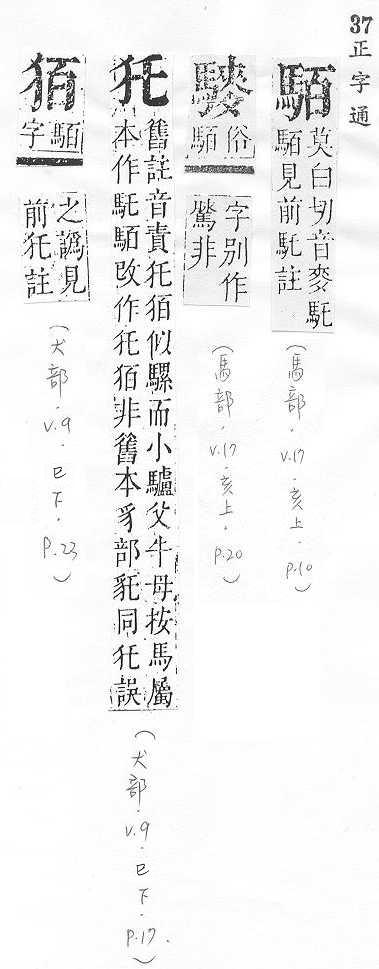 37 正字通
莫白切音麥馲
見前馲註
(馬部.v.17.亥上.P.10)
俗
字別作
非
(馬部.v.17.亥上.P.20)
舊註音責似騾而小驢父牛母按馬屬
本作馲改作非舊本豸部同誤
(犬部.v.9.巳下.P.17.)
字
之譌見
前註
(犬部.v.9.巳下.P.23)